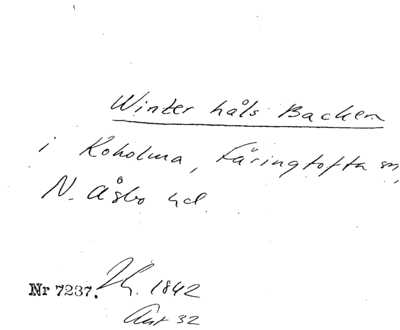 Winter håls Backen
i Koholma, Färingtofta sn,
N. Åsbo hd.
Nr 7237. 1842
32